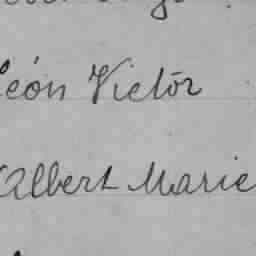 Léon Victor
Albert Marie